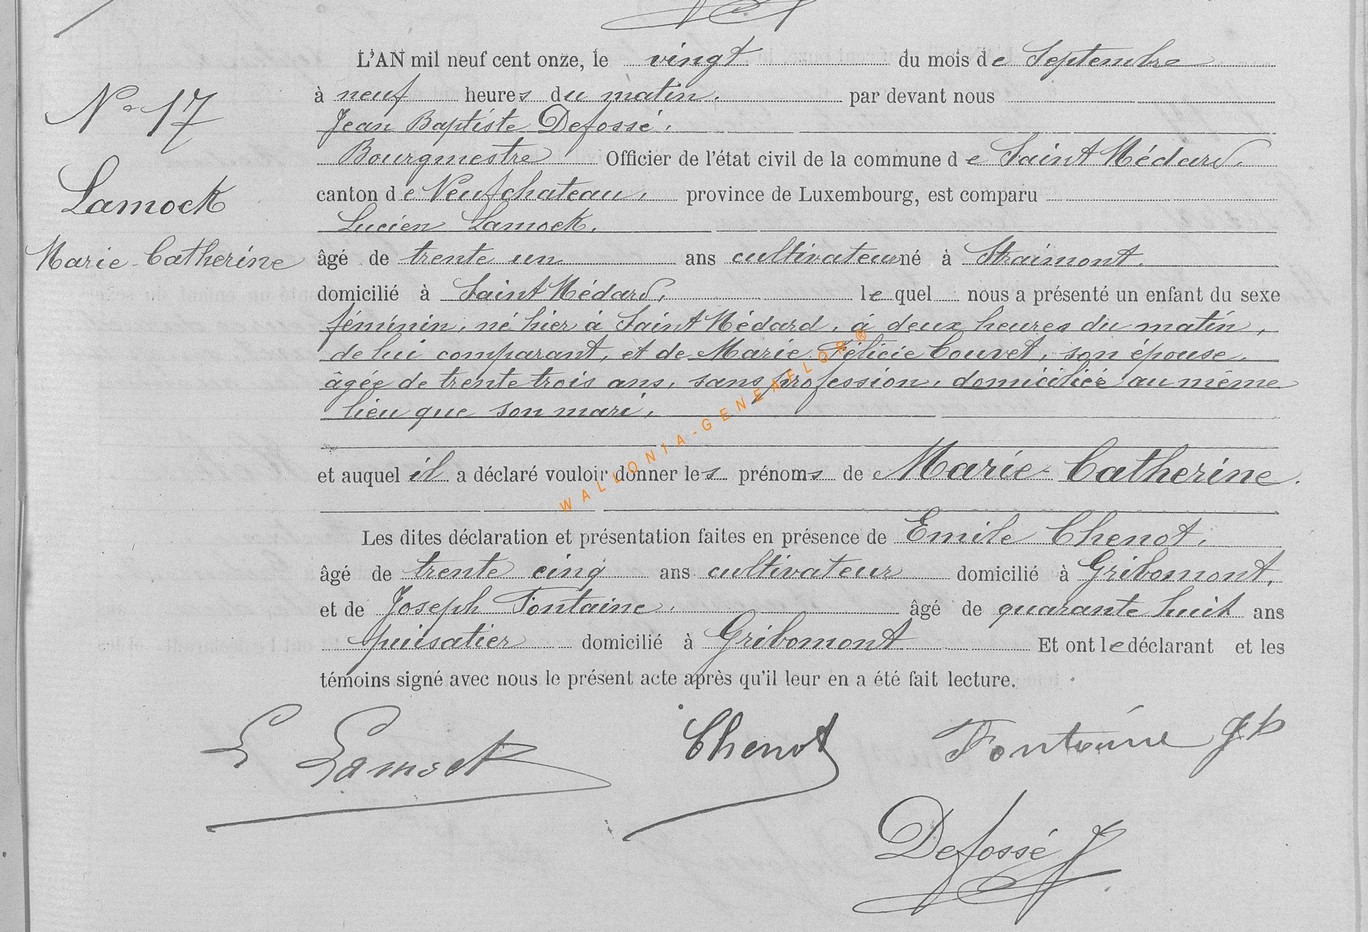 L'AN mil neuf cent onze, le vingt du mois de Septembre
N° 17
à neuf heures du matin. par devant nous
Jean Baptiste Defossé.
Bourgmestre Officier de l'état civil de la commune de Saint Médard.
Lamock
canton de Neufchateau, province de Luxembourg, est comparu
Lucien Lamock.
Marie-Catherine
âgé de trente un ans cultivateur né à Straimont.
domicilié à Saint Médard, lequel nous a présenté un enfant du sexe
féminin, né hier à Saint Médard, à deux heures du matin,
de lui comparant, et de Marie-Félicie Couvet, son épouse.
âgée de trente trois ans, sans profession, domiciliée au même
lieu que son mari.
et auquel il a déclaré vouloir donner les prénoms de Marie-Catherine.
WALLONIA-GENEFLOR®
Les dites déclaration et présentation faites en présence de Emile Chenot.
âgé de trente cinq ans cultivateur domicilié à Gribomont,
et de Joseph Fontaine. âgé de quarante huit ans
puisatier domicilié à Gribomont Et ont le déclarant et les
témoins signé avec nous le présent acte après qu'il leur en a été fait lecture.
L Lamock Chenot Fontaine Jh
Defossé J